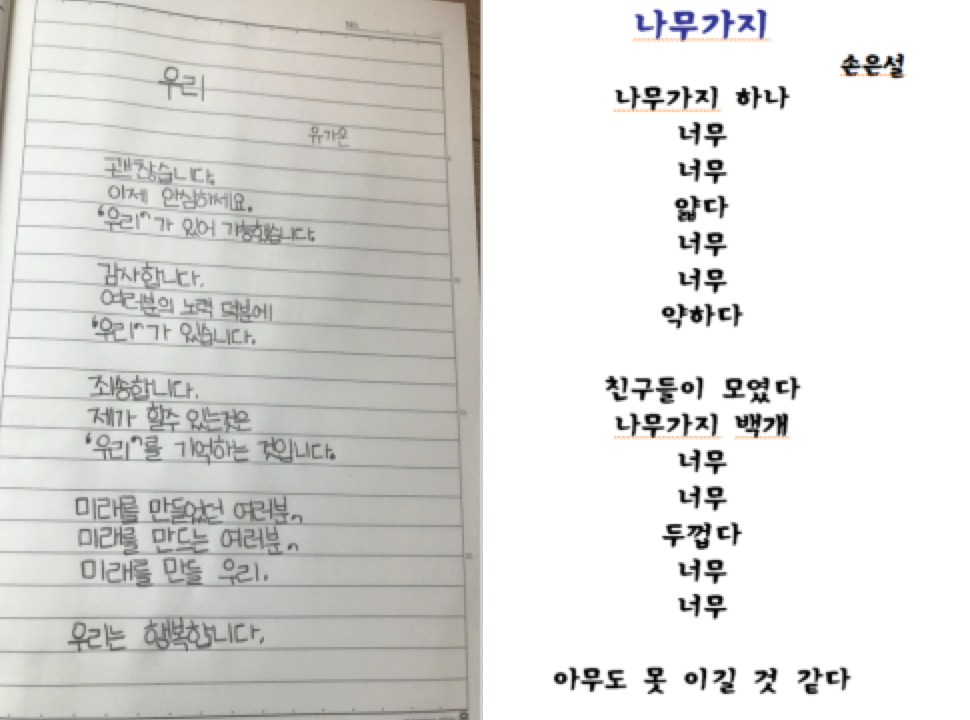 No.
우리
유가온
괜찮습니다.
이제 안심하세요.
"우리"가 있어 가능했습니다.
감사합니다.
여러분의 노력 덕분에
"우리"가 있습니다.
죄송합니다.
제가 할수 있는것은
"우리"를 기억하는 것입니다.
미래를 만들었던 여러분,,
미래를 만드는 여러분,,
미래를 만들 우리.
우리는 행복합니다.
나무가지
손은설
나무가지 하나
너무
너무
얇다
너무
너무
약하다
친구들이 모였다
나무가지 백개
너무
너무
두껍다
너무
너무
아무도 못 이길 것 같다